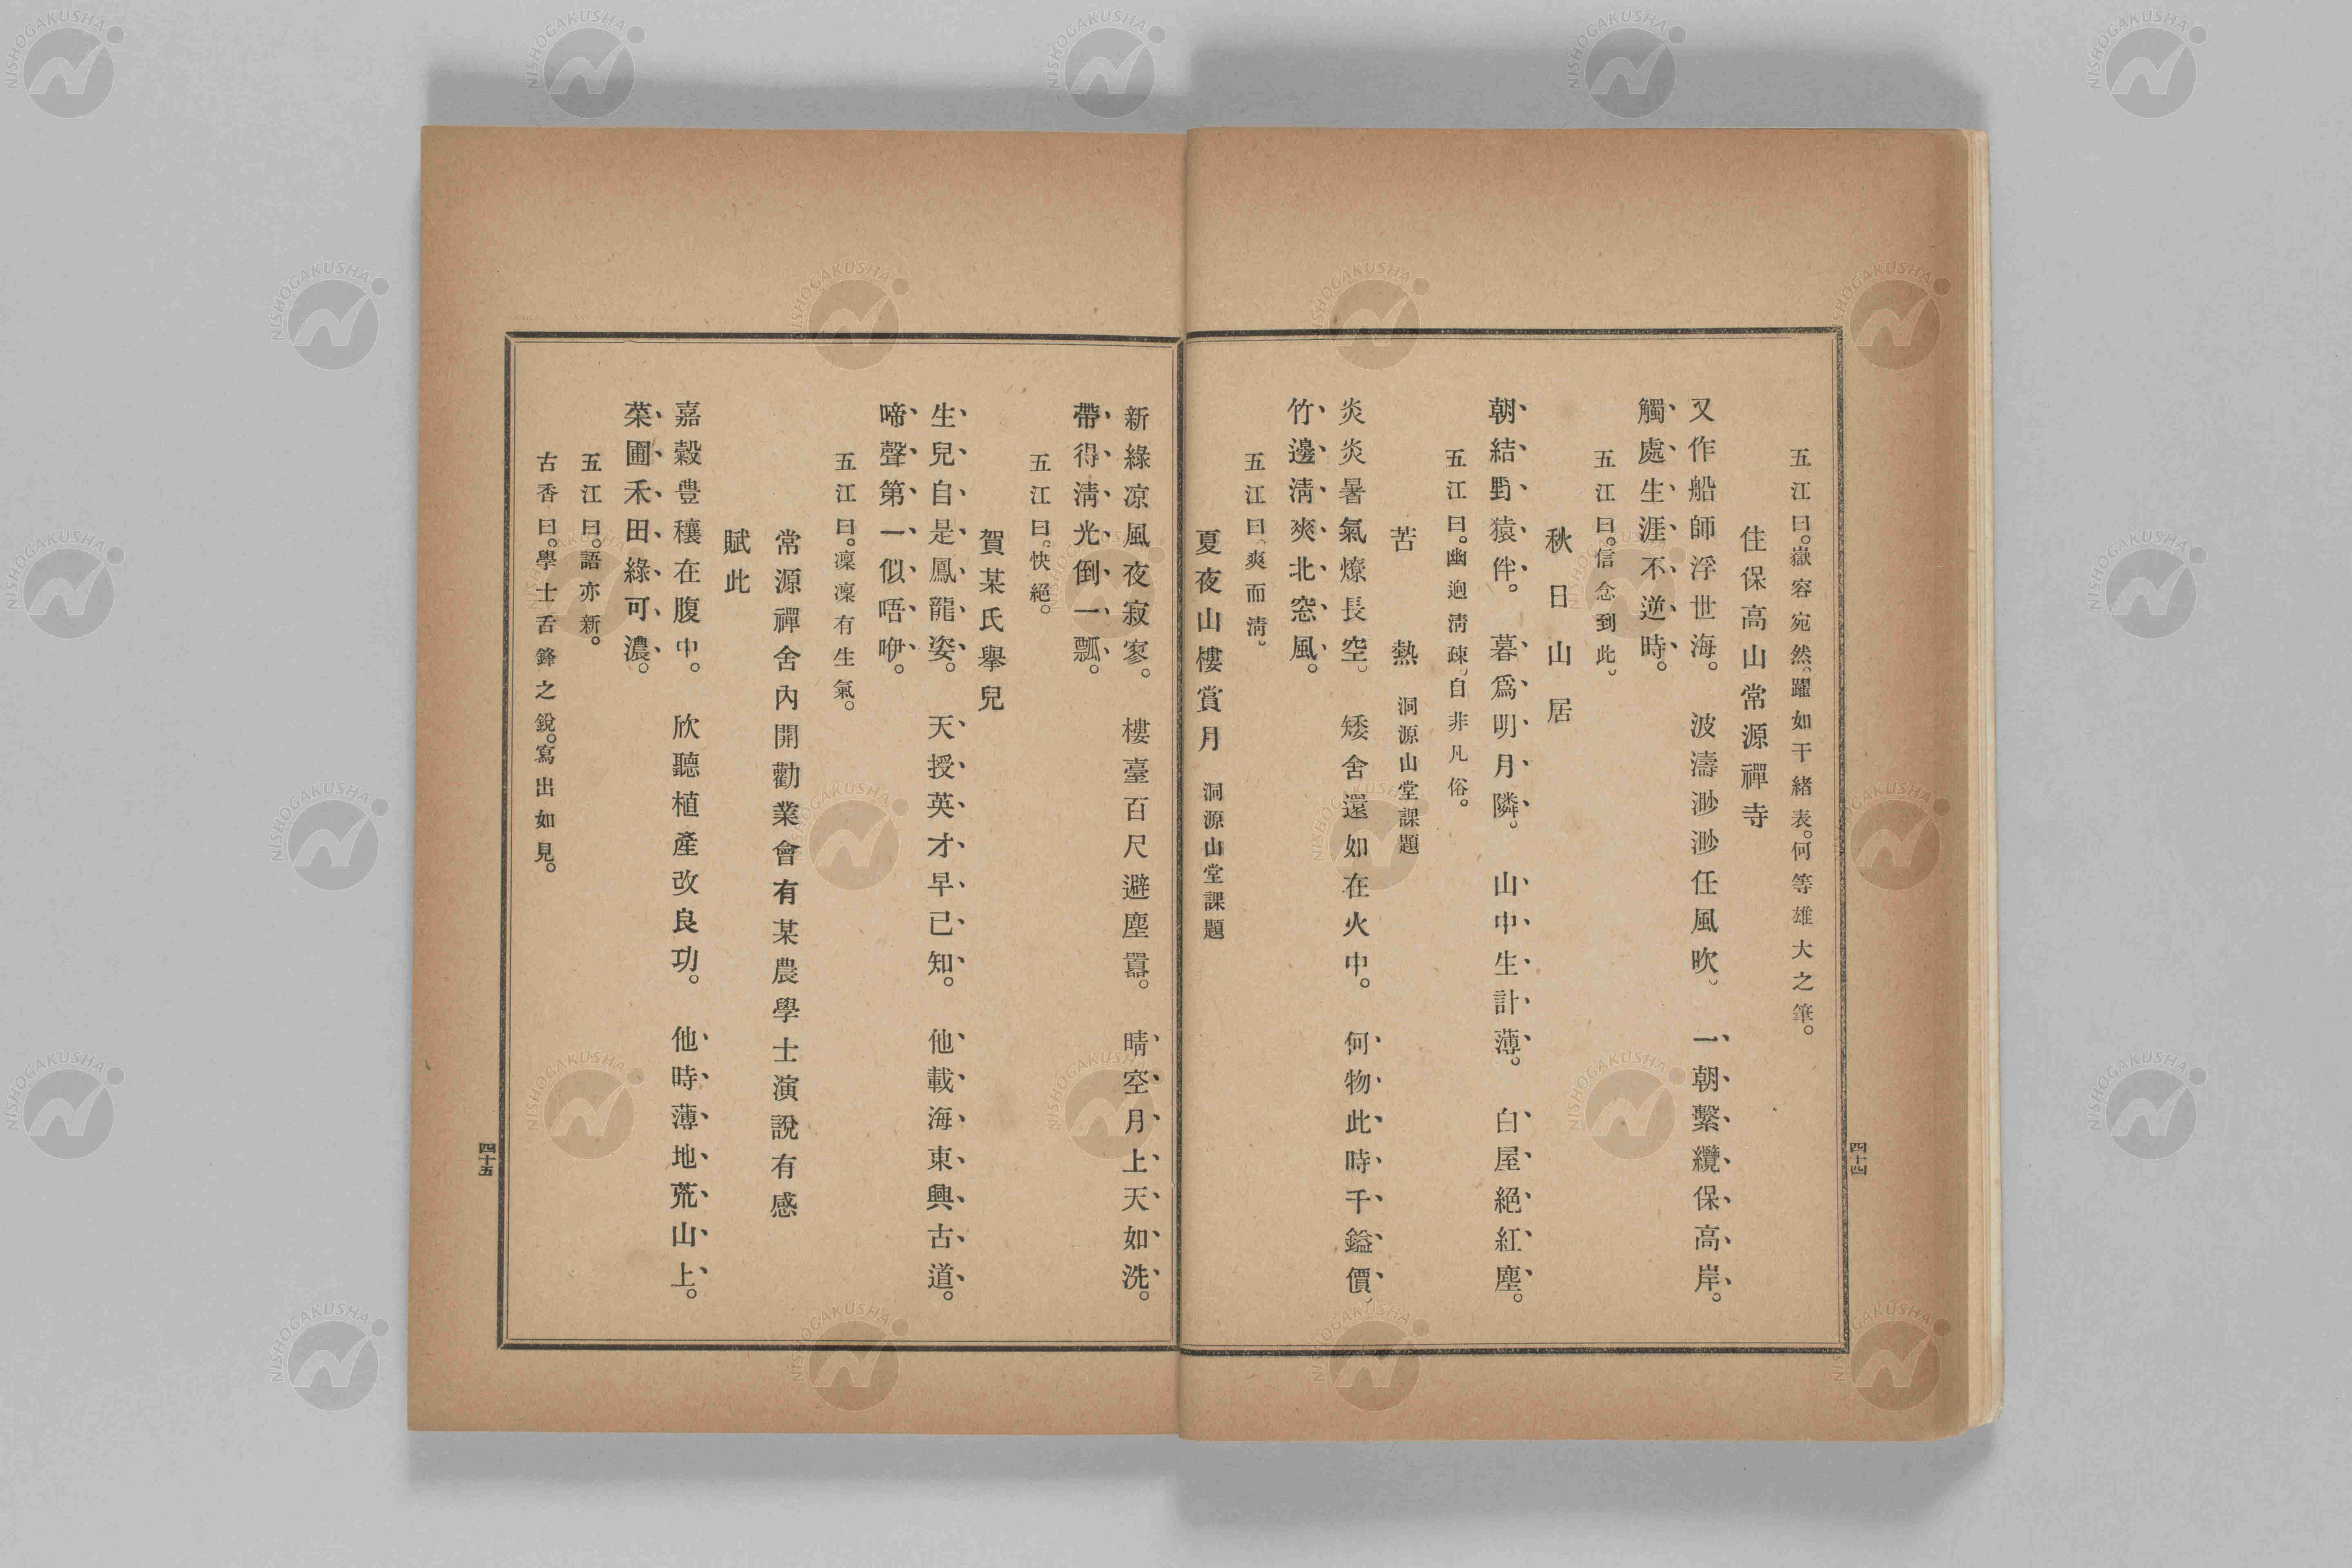 五江曰。嶽容宛然。躍如干緒表。何等雄大之筆。
住保高山常源禪寺
又作船師浮世海。波濤渺渺任風吹。一朝繫纜保高岸。
觸處生涯不逆時。
五江曰。信念到此。
秋日山居
朝結野猿伴。暮爲明月隣。山中生計薄。白屋絕紅塵。
五江曰。幽迥淸疎。自非凡俗。
苦熱 洞源山堂課題
炎炎暑氣燎長空。矮舍還如在火中。何物此時千鎰價。
竹邊淸爽北窓風。
五江曰。爽而淸。
夏夜山樓賞月 洞源山堂課題
四十四
新綠凉風夜寂寥。樓臺百尺避塵囂。晴空月上天如洗。
帶得淸光倒一瓢。
五江曰。快絕。
賀某氏擧兒
生兒自是鳳龍姿。天授英才早已知。他載海東興古道。
啼聲第一似唔咿。
五江曰。凜凜有生氣。
常源禪舍內開勸業會有某農學士演說有感
賦此
嘉穀豊穰在腹中。欣聽植產改良功。他時薄地荒山上。
菜圃禾田綠可濃。
五江曰。語亦新。
古香曰。學士舌鋒之銳。寫出如見。
四十五
NISHOGAKUSHA